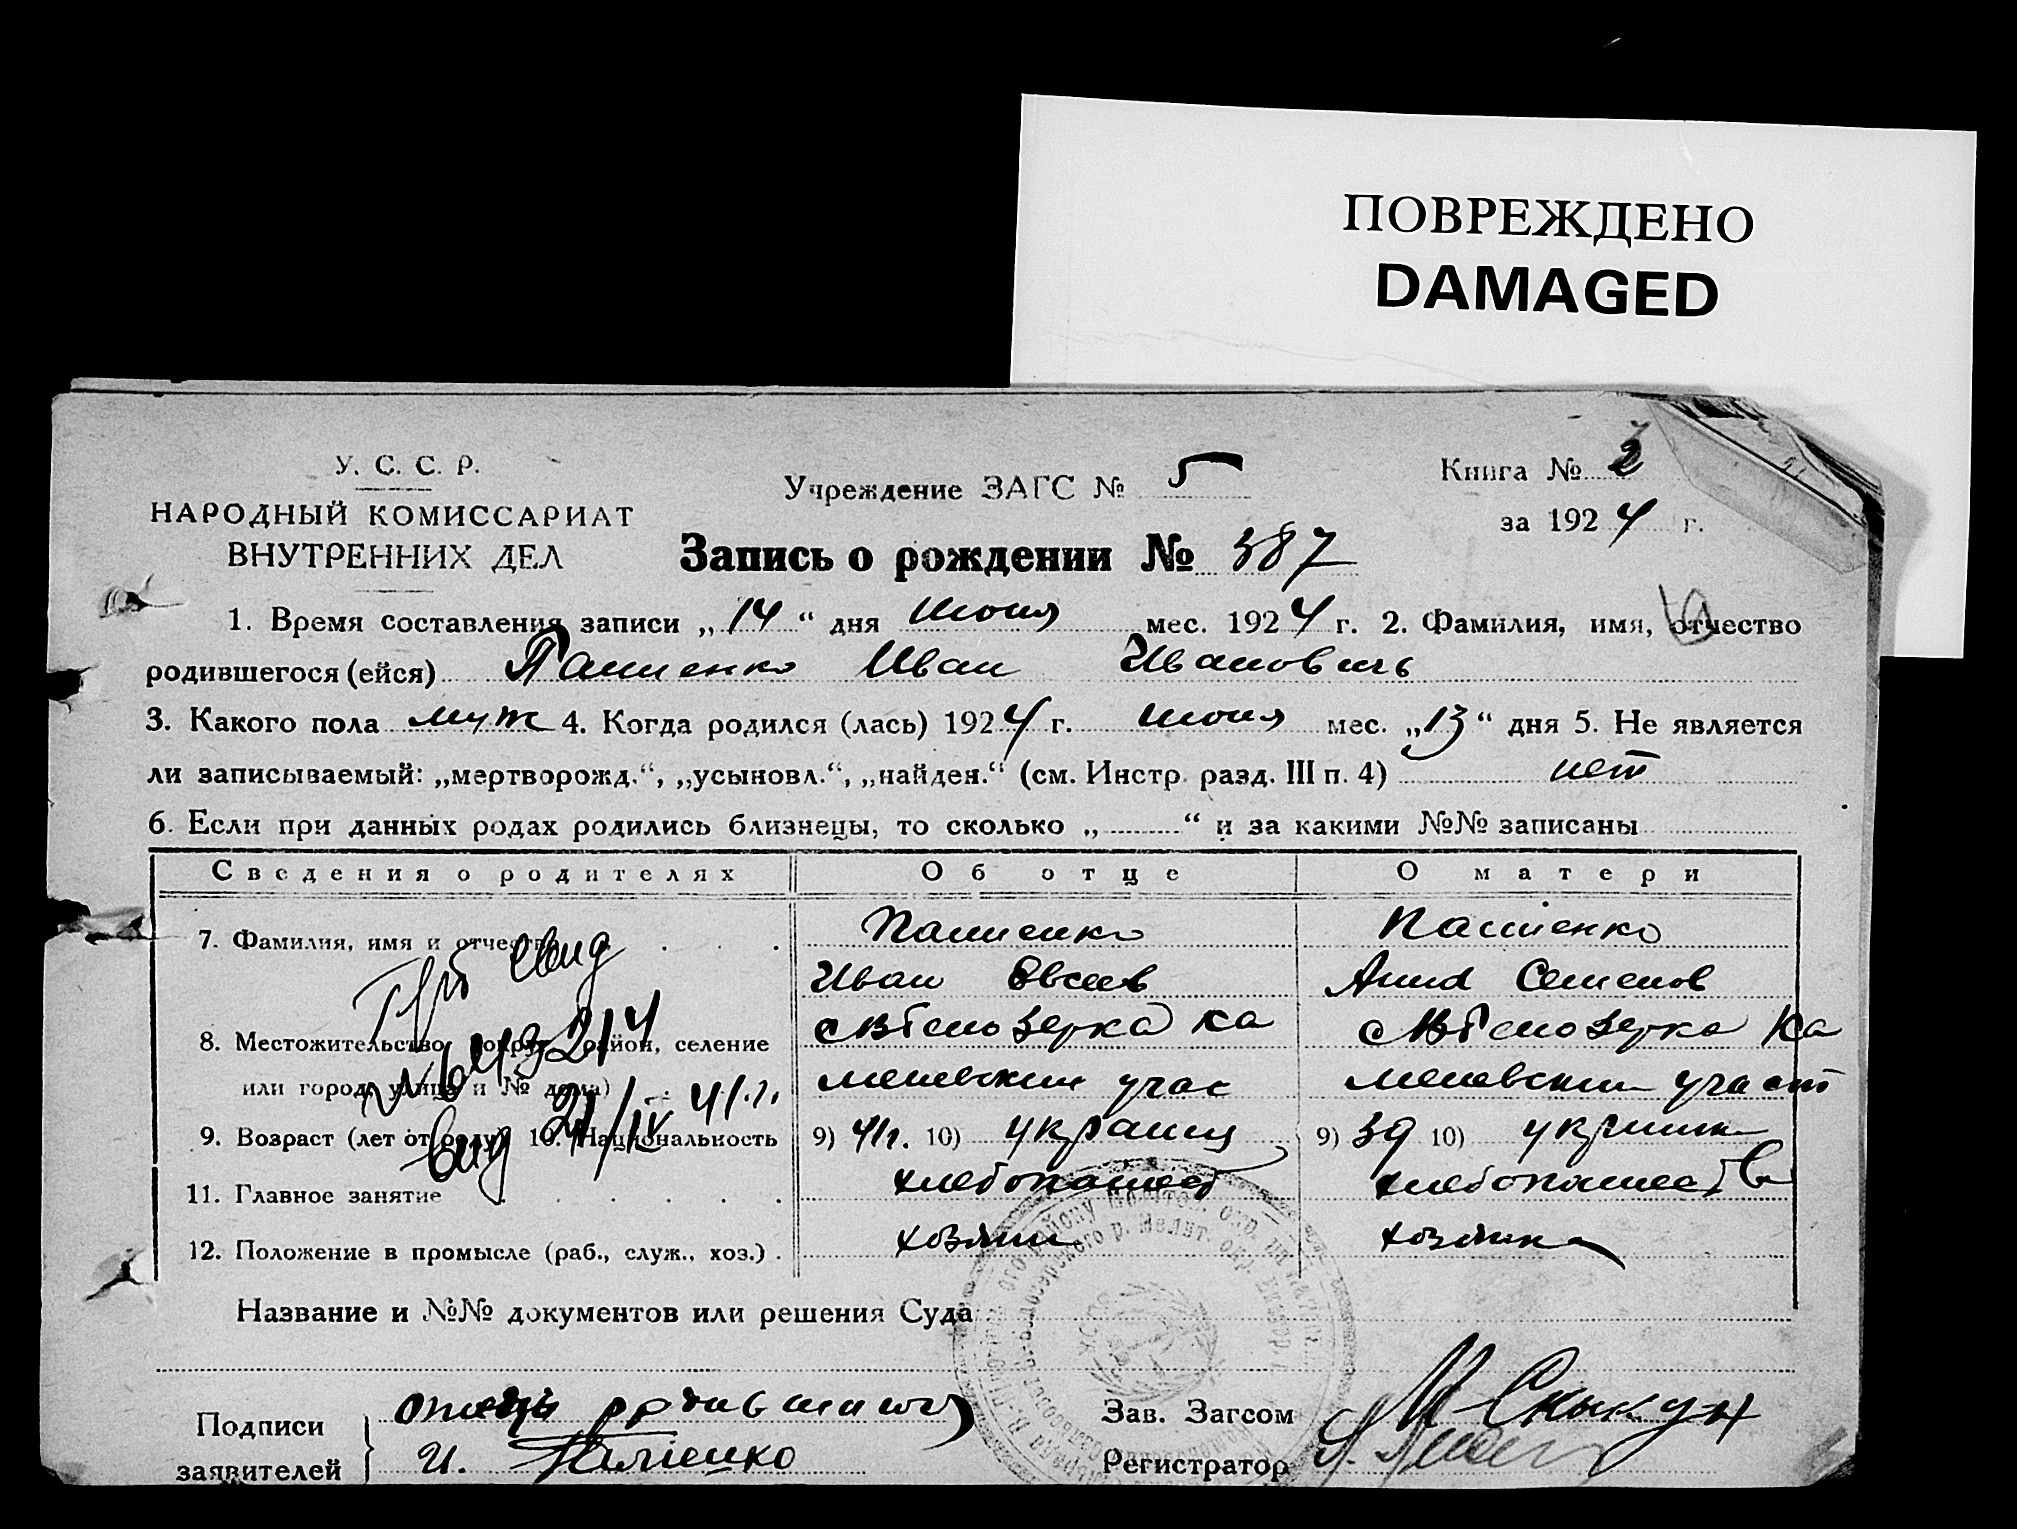 ПОВРЕЖДЕНО
DAMAGED
У. С. С. Р.
НАРОДНЫЙ КОМИССАРИАТ
ВНУТРЕННИХ ДЕЛ
Учреждение ЗАГС № 5
Книга № 2
за 1924 г.
Запись о рождении № 387
1. Время составления записи „14“ дня июня мес. 1924 г. 2. Фамилия, имя, отчество
родившегося (ейся) Пашенко Иван Ивановичь
3. Какого пола муж 4. Когда родился (лась) 1924 г. июня мес. „13“ дня 5. Не является
ли записываемый: „мертворожд.“, „усыновл.“, „найден.“ (см. Инстр. разд. III п. 4) нет
6. Если при данных родах родились близнецы, то сколько „ “ и за какими №№ записаны
Сведения о родителях Об отце О матери
7. Фамилия, имя и отчество Пашенко Пашенко
Иван Евсеев Анна Семенов
8. Местожительство (округ, район, селение Ка Ка
или город, улица и № дома) меневский учас меневский участ
9. Возраст (лет от роду) 10. Национальность 9) 41г. 10) украинц 9) 39 10)
21/IV 41 г.
11. Главное занятие хлебопашест хлебопашества
12. Положение в промысле (раб., служ., хоз.) хозяин хозяйка
Название и №№ документов или решения Суда
Подписи заявителей отець
И. Пашенко
Зав. Загсом
Регистратор